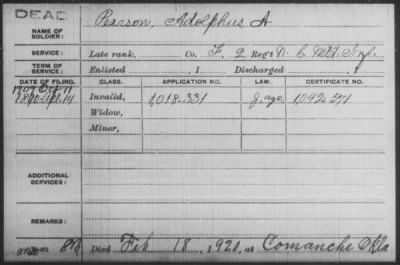 DEAD
NAME OF SOLDIER: Pearson, Adolphus A.
SERVICE: Late rank, Co. F, 2 Reg't N. C. Mtd. Inf.
TERM OF SERVICE: Enlisted , 1 Discharged , 1
DATE OF FILING. CLASS. APPLICATION NO. LAW. CERTIFICATE NO.
Invalid, 1,018.331 J. age. 1,042.571
Widow,
Minor,
ADDITIONAL SERVICES:
REMARKS:
Died Feb 18, 1920, at Comanche Okla